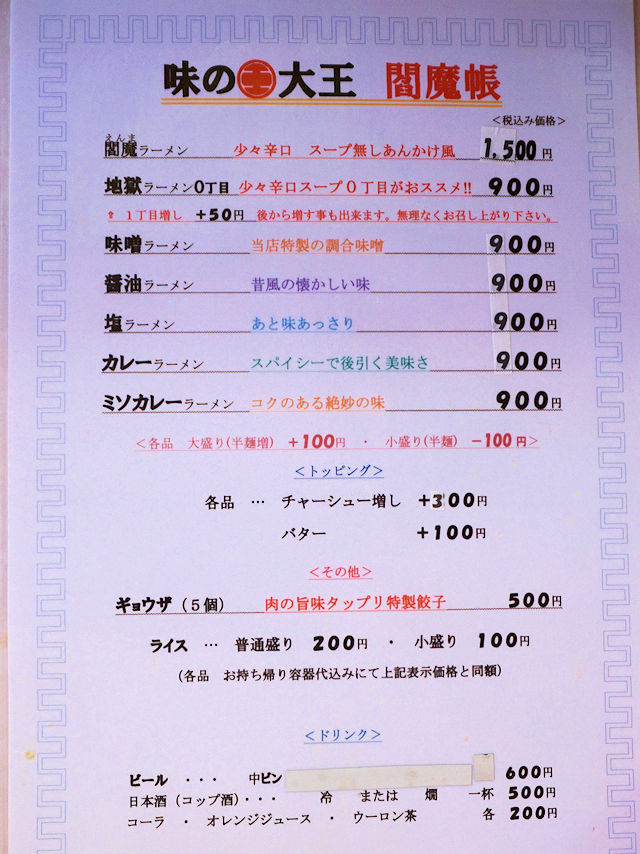 味の大王 閻魔帳
<税込み価格>
えんま
閻魔ラーメン 少々辛口 スープ無しあんかけ風 1,500円
地獄ラーメン0丁目 少々辛口スープ0丁目がおススメ!! 900円
⇧ 1丁目増し +50円 後から増す事も出来ます。無理なくお召し上がり下さい。
味噌ラーメン 当店特製の調合味噌 900円
醤油ラーメン 昔風の懐かしい味 900円
塩ラーメン あと味あっさり 900円
カレーラーメン スパイシーで後引く美味さ 900円
ミソカレーラーメン コクのある絶妙の味 900円
<各品 大盛り(半麺増) +100円 ・ 小盛り(半麺) −100円>
<トッピング>
各品 … チャーシュー増し +300円
バター +100円
<その他>
ギョウザ(5個) 肉の旨味タップリ特製餃子 500円
ライス … 普通盛り 200円 ・ 小盛り 100円
(各品 お持ち帰り容器代込みにて上記表示価格と同額)
<ドリンク>
ビール ・・・ 中ビン 600円
日本酒(コップ酒)・・・ 冷 または 燗 一杯 500円
コーラ ・ オレンジジュース ・ ウーロン茶 各 200円